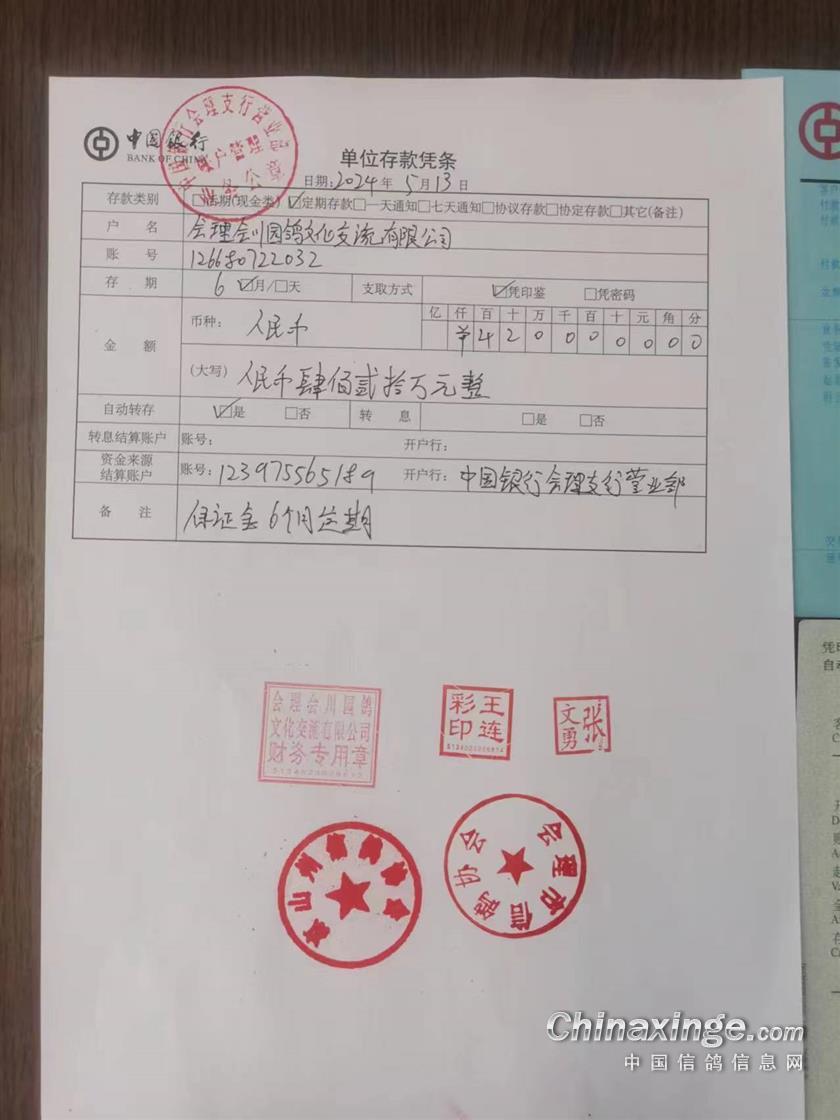 中国银行
BANK OF CHINA
单位存款凭条
日期:2024年5月13日
存款类别 □活期(现金类) ☑定期存款□一天通知□七天通知□协议存款□协定存款□其它(备注)
户 名 会理会川园鸽文化交流有限公司
账 号 126680722032
存 期 6 ☑月/□天 支取方式 ☑凭印鉴 □凭密码
金 额 币种: 人民币 亿 仟 百 十 万 千 百 十 元 角 分
¥ 4 2 0 0 0 0 0 0 0
(大写) 人民币肆佰贰拾万元整
自动转存 ☑是 □否 转 息 □是 □否
转息结算账户 账号: 开户行:
资金来源结算账户 账号:123975565189 开户行:中国银行会理支行营业部
备 注 保证金6个月定期
会理会川园鸽
文化交流有限公司
财务专用章
王连彩印
张文勇
会理市信鸽协会
Chinaxinge.com
中国信鸽信息网